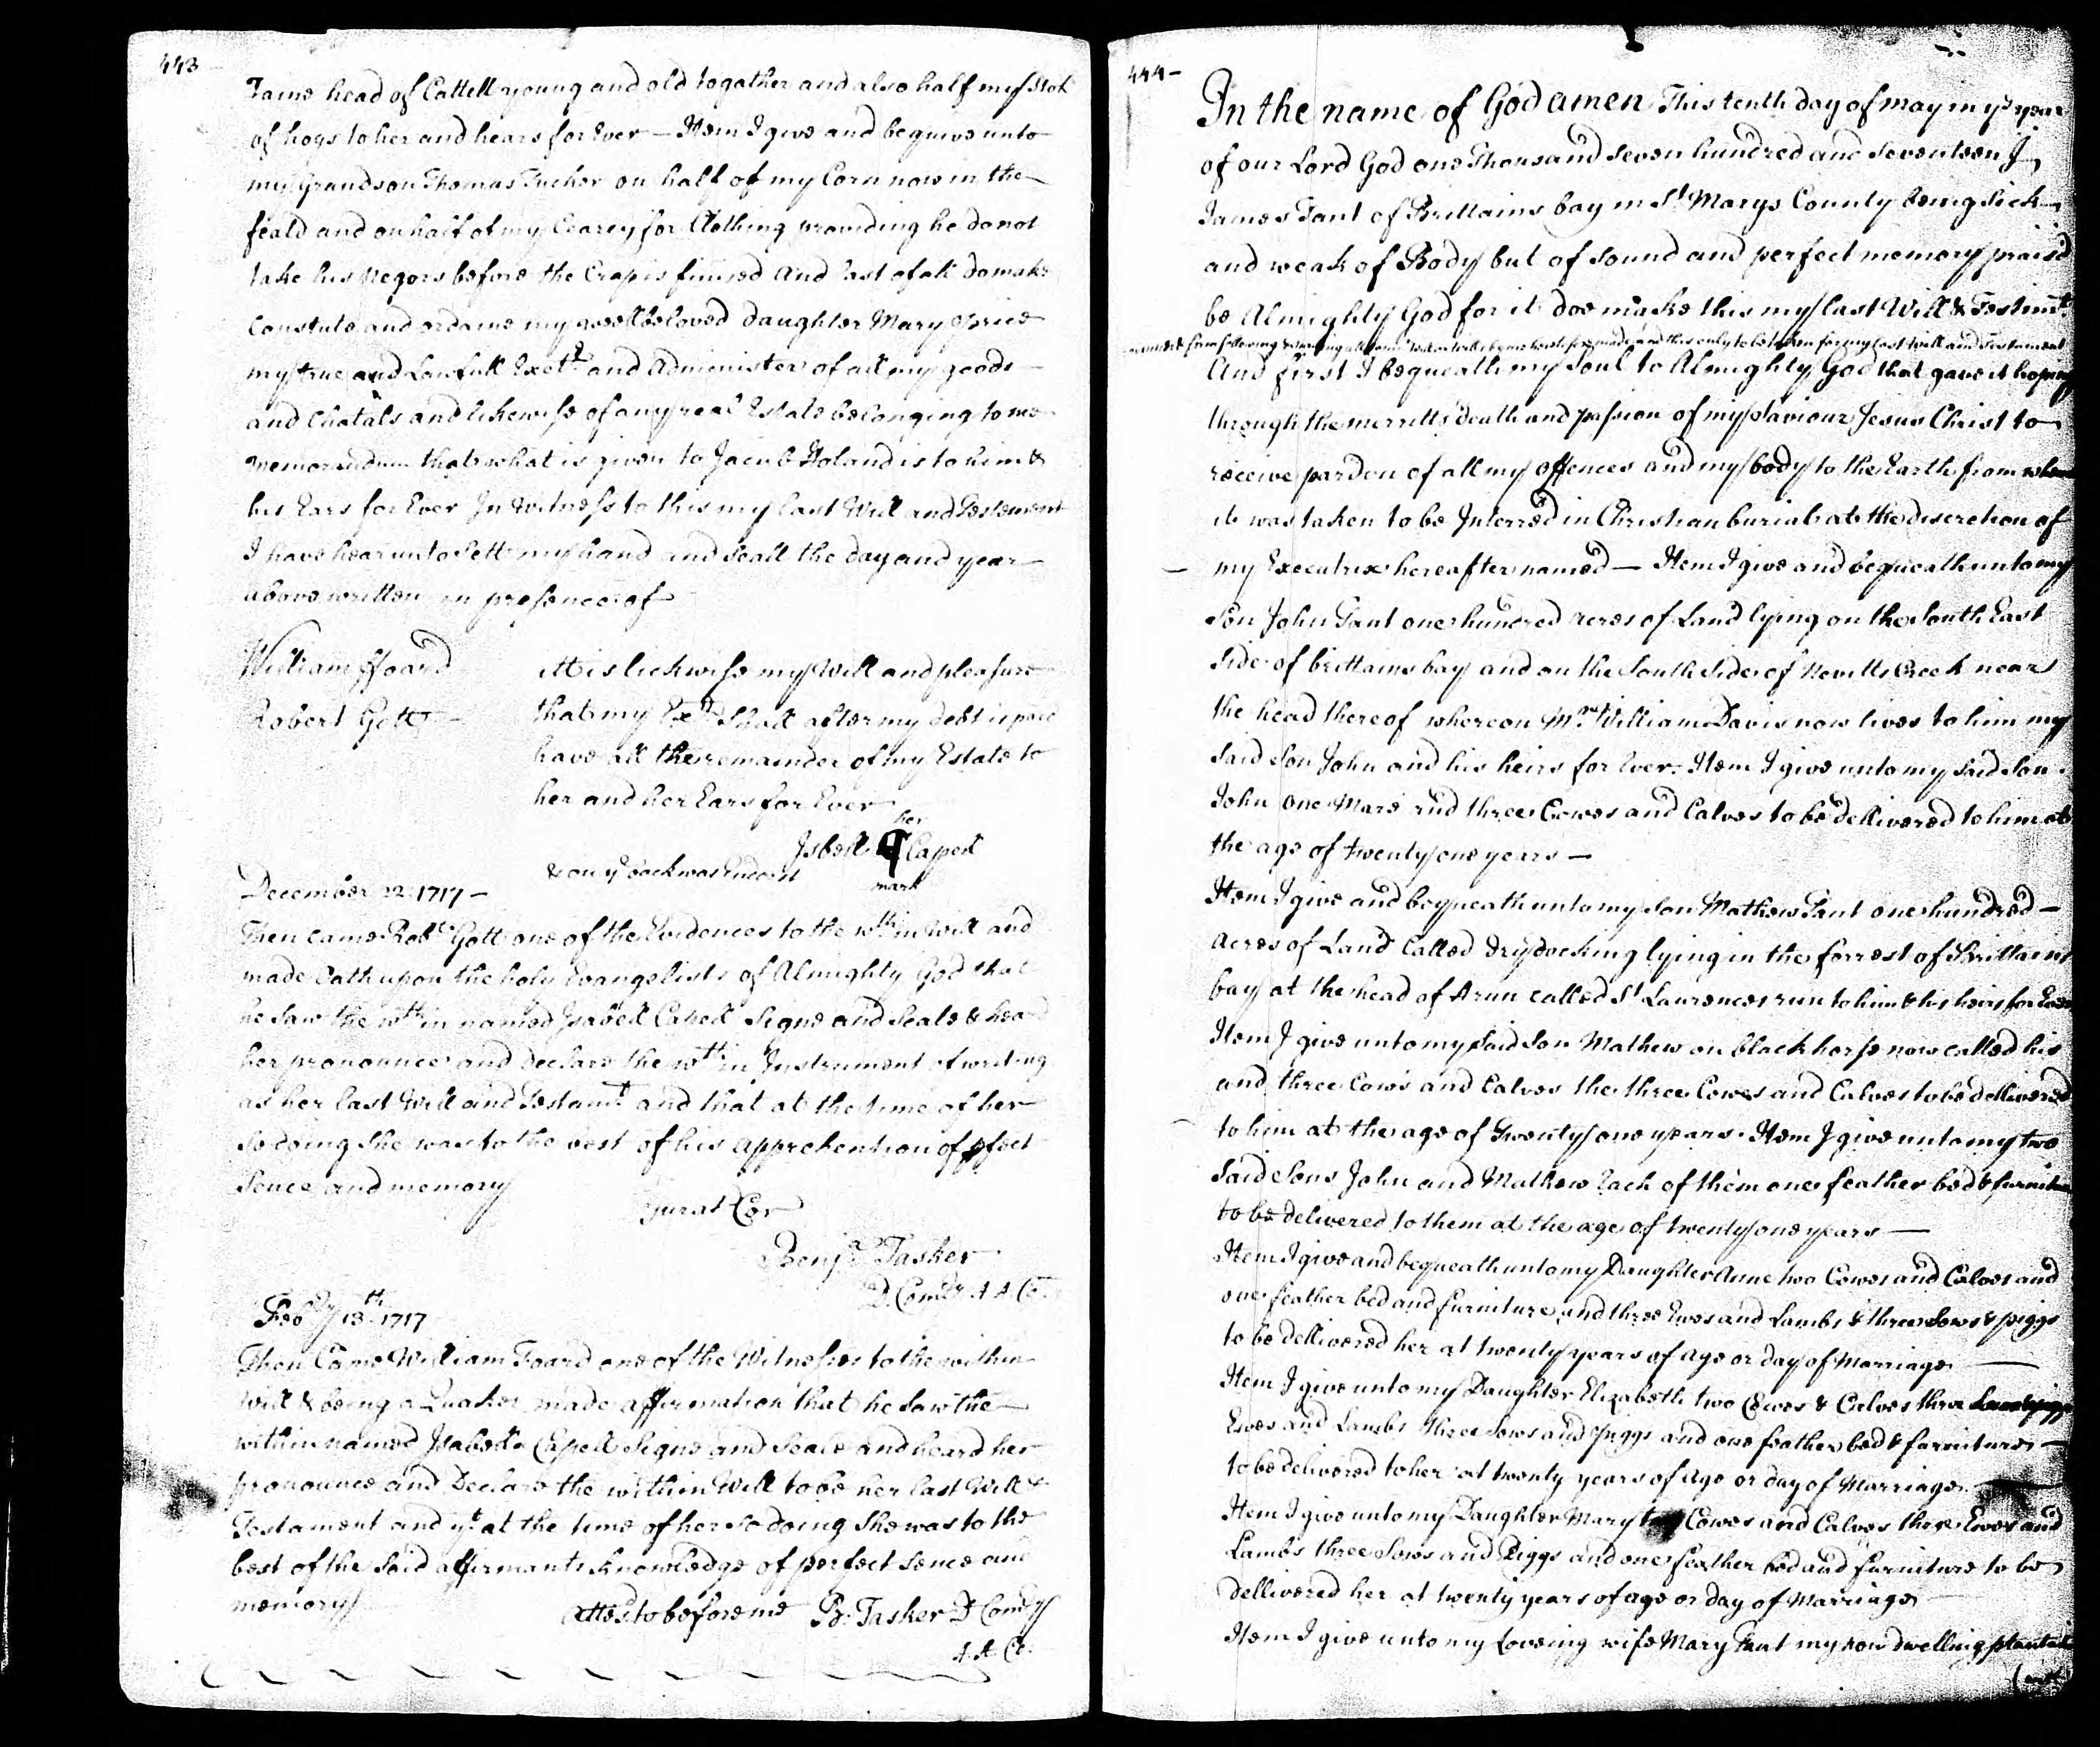 443
Tame head of Cattell young and old togather and also half my Stok
of hogs to her and hears for Ever — Item I give and bequive unto
my Grandson Thomas Tucker on half of my Corn now in the
feald and on half of my Cearey for Clothing providing he do not
take his Negors before the Crap is finised And last of all do make
Constute and ordame my well beloved daughter Mary Price
my true and Lawfull Exetx and Administer of all my goods
and Chatals and likewise of any real Estate belonging to me
memorandum that what is given to Jacub Holand is to him &
his Ears for Ever In witness to this my last Will and Testement
I have hear unto Sett my hand and Seall the day and year
above written in presence of
William ffoard
Robert Gott
itt is lickwise my Will and pleasure
that my Extx Shall after my debt is paid
have all the remainder of my Estate to
her and her Ears for Ever
her
Isbell Capell
mark
& on ye back was Indorst
December 22 1717 —
Then came Robt Gott one of the Evidences to the wth in Will and
made Oath upon the holy Evangelists of Almighty God that
he Saw the wth in named Isabell Capell Signe and Seale & heard
her pronounce and Declare the wth in Instrument of writing
as her last Will and Testamt and that at the time of her
so doing She was to the best of his apprehention of pfect
Sence and memory
Jurat Cor
Benja Tasker
D. Comry A A Co.
Febry 13th 1717
Then Came William Foard one of the Witnesses to the within
Will & being a Quaker made affirmation that he Saw the
within named Isabell Capell Signe and Seale and heard her
pronounce and Declare the within Will to be her last Will &
Testament and yt at the time of her so doing She was to the
best of the Said affirmants knowledge of perfect Sence and
memory
Attesto before me B: Tasker D Comry
A. A. Co.
444 —
In the name of God amen This tenth day of may in ye year
of our Lord God one Thousand Seven hundred and Seventeen I
James Tant of Brittains bay in St Marys County being Sick
and weak of Body but of Sound and perfect memory prais'd
be Almighty God for it doe make this my last Will & Testimt
form following revoking all former Will or Wills by me heretofore made and this only to be taken for my last Will and Testament
And first I bequeath my Soul to Almighty God that gave it hoping
through the merritts death and passion of my Saviour Jesus Christ to
receive pardon of all my offences and my body to the Earth from whence
it was taken to be Interred in Christian burial at the discretion of
my Executrix hereafter named — Item I give and bequeath unto my
Son John Tant one hundred acres of Land lying on the South East
Side of brittains bay and on the South Side of Nevitts Creek near
the head thereof whereon Mr William Davis now lives to him my
said Son John and his heirs for Ever. Item I give unto my said Son
John one Mare and three Cowes and Calves to be dellivered to him at
the age of twenty one years —
Item I give and bequeath unto my Son Mathew Tant one hundred —
Acres of Land Called drydocking lying in the forrest of Brittains
bay at the head of A run called St Laurences run to him & his heirs for Ever
Item I give unto my Said Son Mathew on black horse now called his
and three Cows and Calves the three Cowes and Calves to be dellivered
to him at the age of Twenty one years. Item I give unto my two
Said Sons John and Mathew Each of them one feather bed & furniture
to be delivered to them at the age of twenty one years —
Item I give and bequeath unto my Daughter Anne two Cowes and Calves and
one feather bed and furniture and three Ewes and Lambs & three Sows & piggs
to be dellivered her at twenty years of age or day of Marriage —
Item I give unto my Daughter Elizabeth two Cowes & Calves three
Ewes and Lambs three Sows and Piggs and one feather bed & furniture —
to be delivered to her at twenty years of Age or day of Marriage.
Item I give unto my Daughter Mary Cowes and Calves three Ewes and
Lambs three Sows and Piggs and one feather bed and furniture to be
dellivered her at twenty years of age or day of Marriage
Item I give unto my Loveing wife Mary Tant my now dwelling plantat